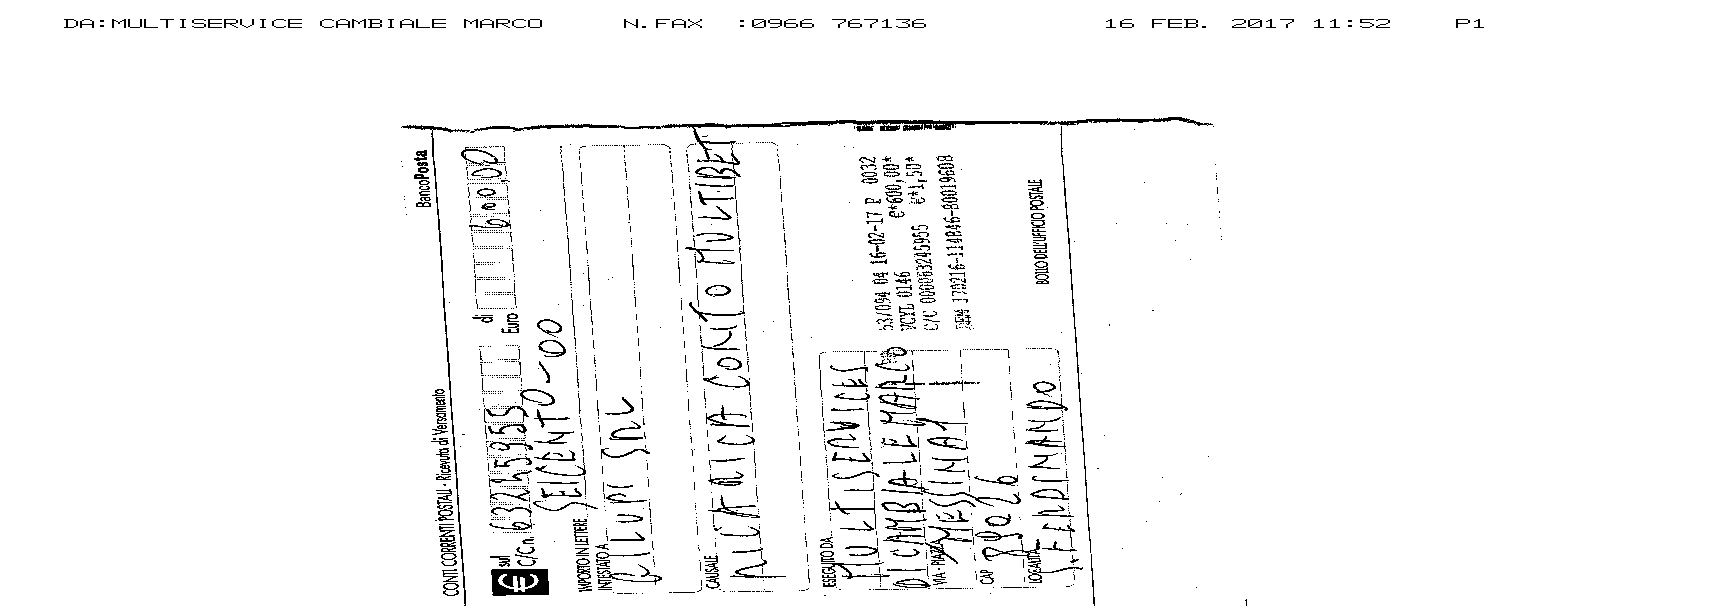 DA:MULTISERVICE CAMBIALE MARCO N.FAX :0966 767136 16 FEB. 2017 11:52 P1
CONTI CORRENTI POSTALI - Ricevuta di Versamento BancoPosta
€ sul C/C n. 63245955 di Euro 600,00
IMPORTO IN LETTERE SEICENTO-00
INTESTATO A
SRL
CAUSALE
RICARICA CONTO MULTIBET
ESEGUITO DA
MULTISERVICES
DI CAMBIALE MARCO
VIA - PIAZZA MESSINA
CAP 89026
LOCALITÀ S. FERDINANDO
53/094 04 16-02-17 P 0032
VCYL 0146 €*600,00*
C/C 000063245955 €*1,50*
BOLLO DELL'UFFICIO POSTALE